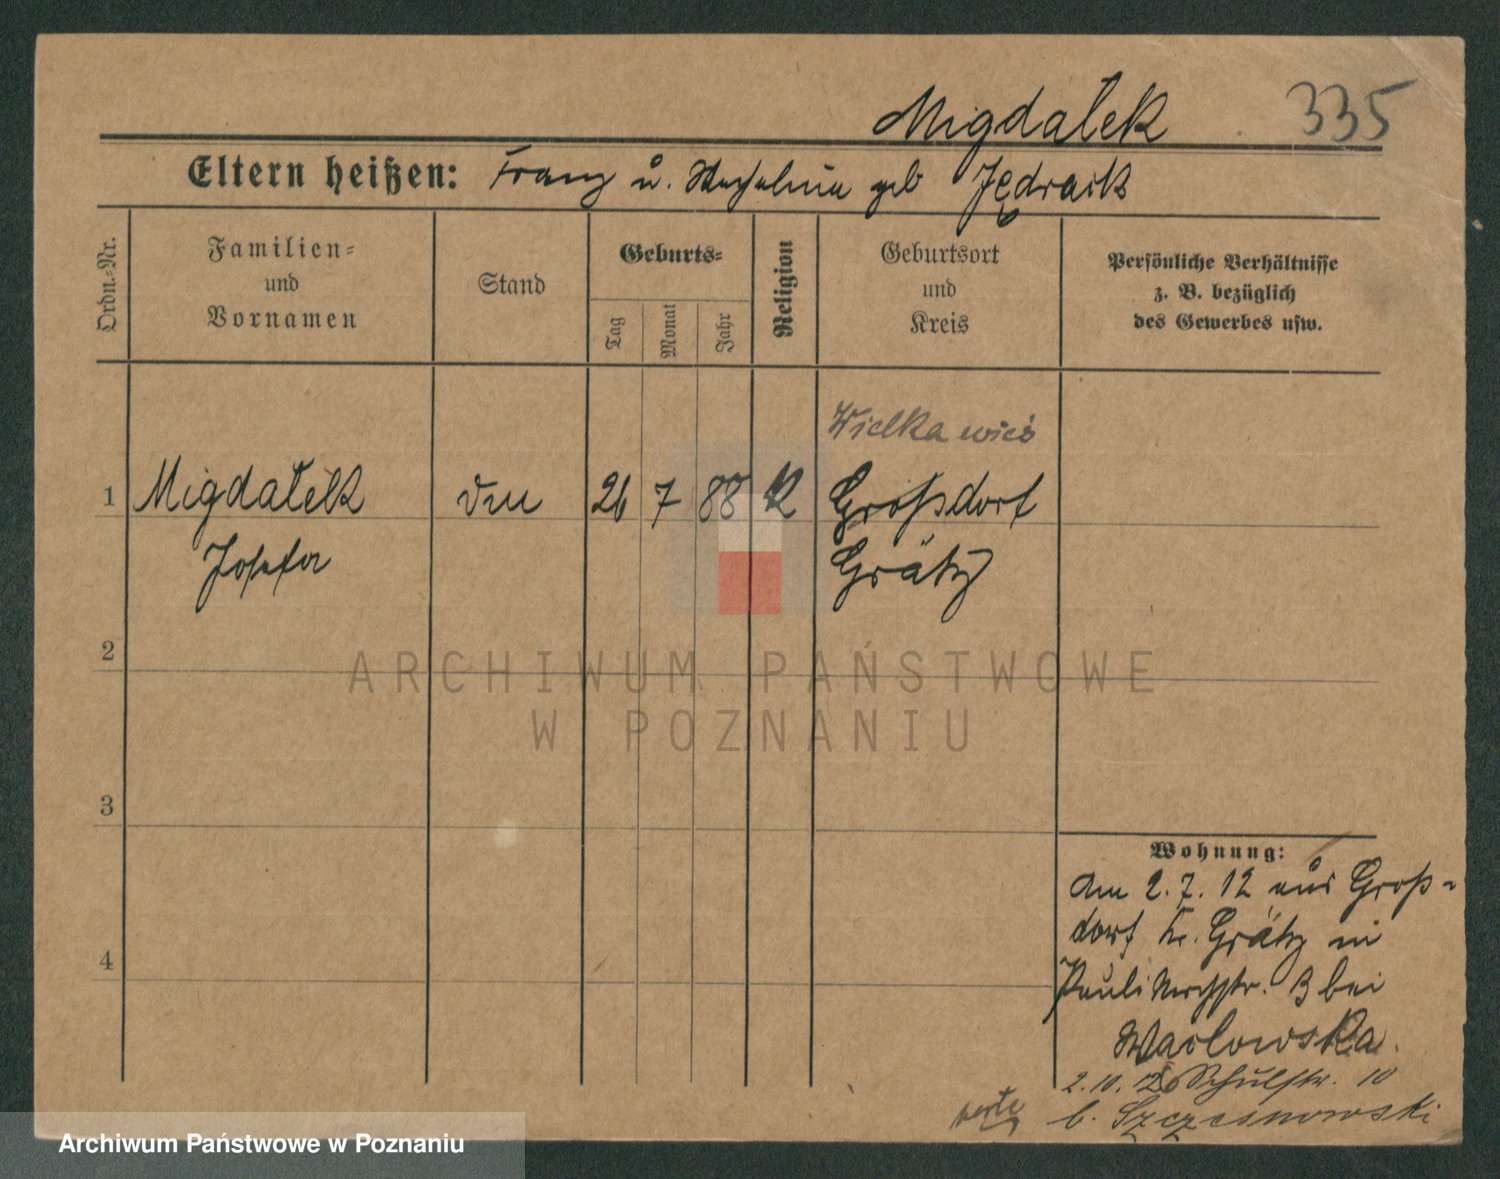 Migdałek 335
Eltern heißen: Franz u. geb Jędraik
Ordn.-Nr.
Familien-
und
Vornamen
Stand
Geburts-
Tag
Monat
Jahr
Religion
Geburtsort
und
Kreis
Persönliche Verhältnisse
z. B. bezüglich
des Gewerbes usw.
Wielka wieś
1 Migdałek 26 7 88 K Großdorf
Josefa Grätz
2
ARCHIWUM PAŃSTWOWE
W POZNANIU
3
Wohnung:
Am 2.7.12 aus Groß-
dorf Kr. Grätz in
4
Paulikirchstr. 3 bei
Waclowska.
2.10.12 Schulstr. 10
verte b. Szczesnowski
Archiwum Państwowe w Poznaniu